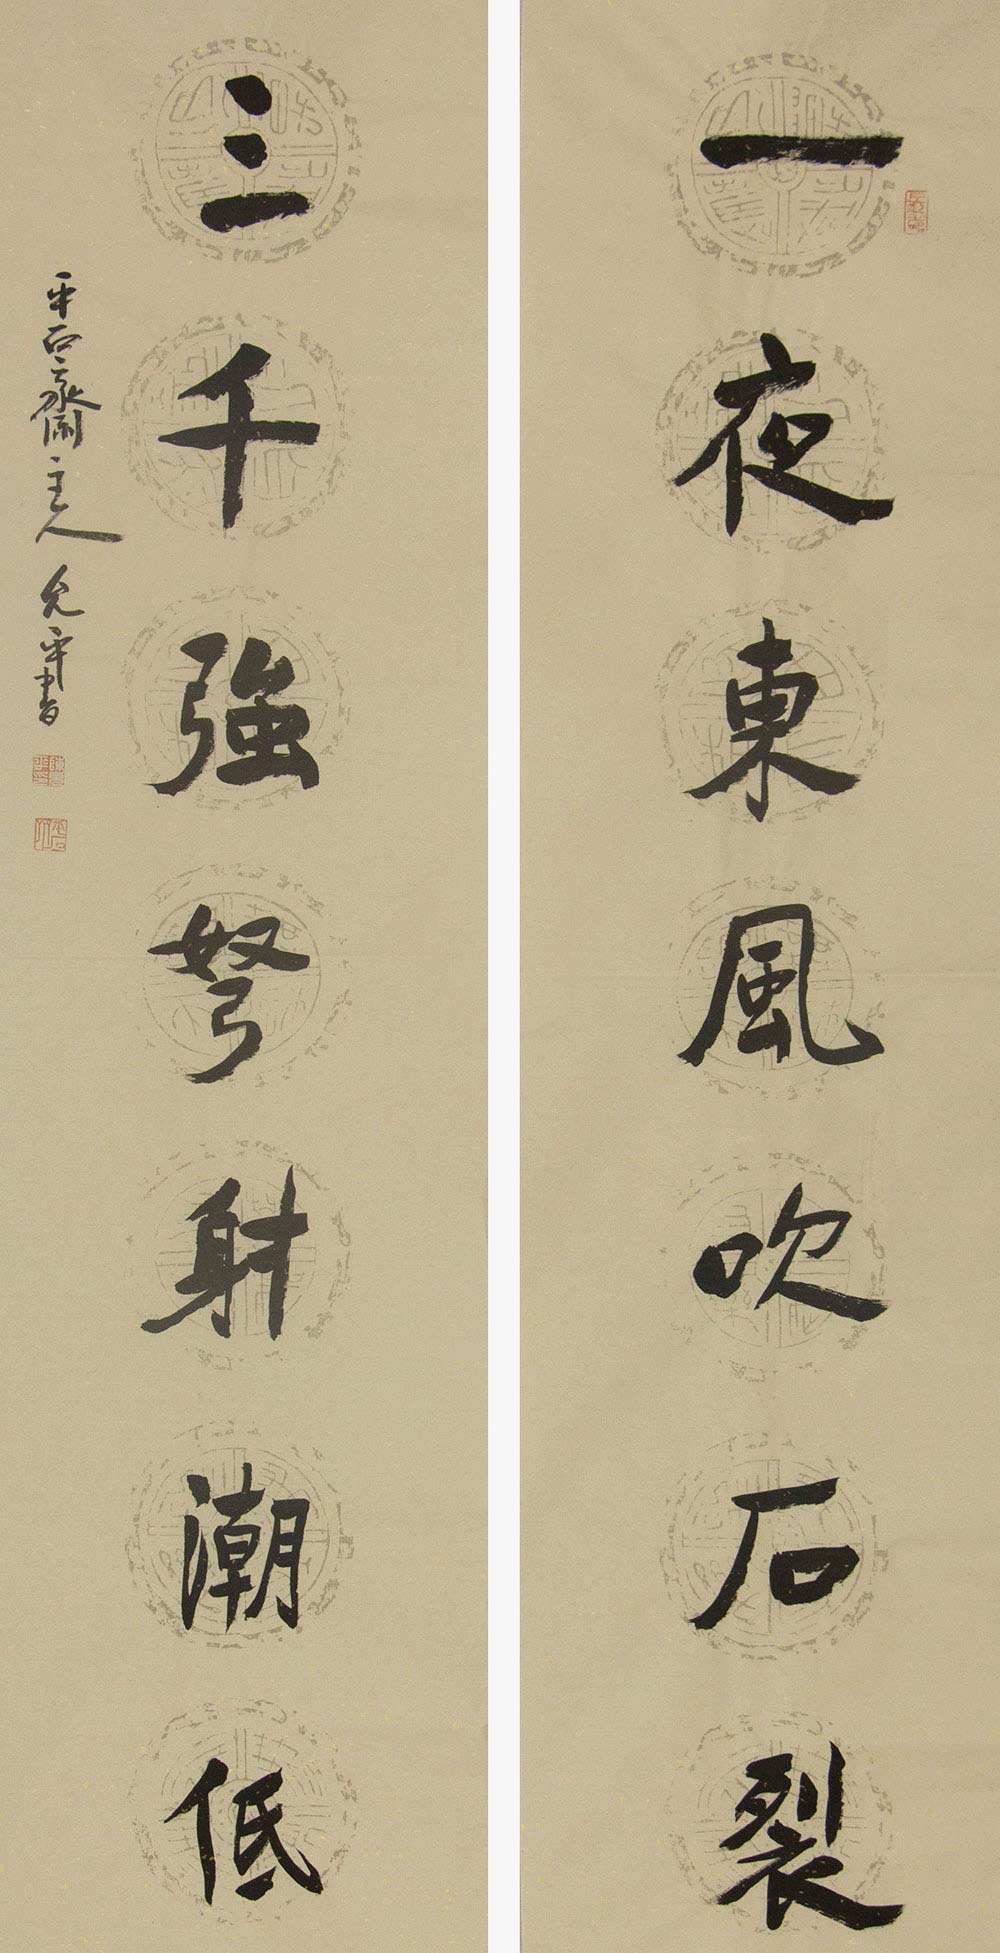 一夜東風吹石裂
三千強弩射潮低
平石齋主人 允平書